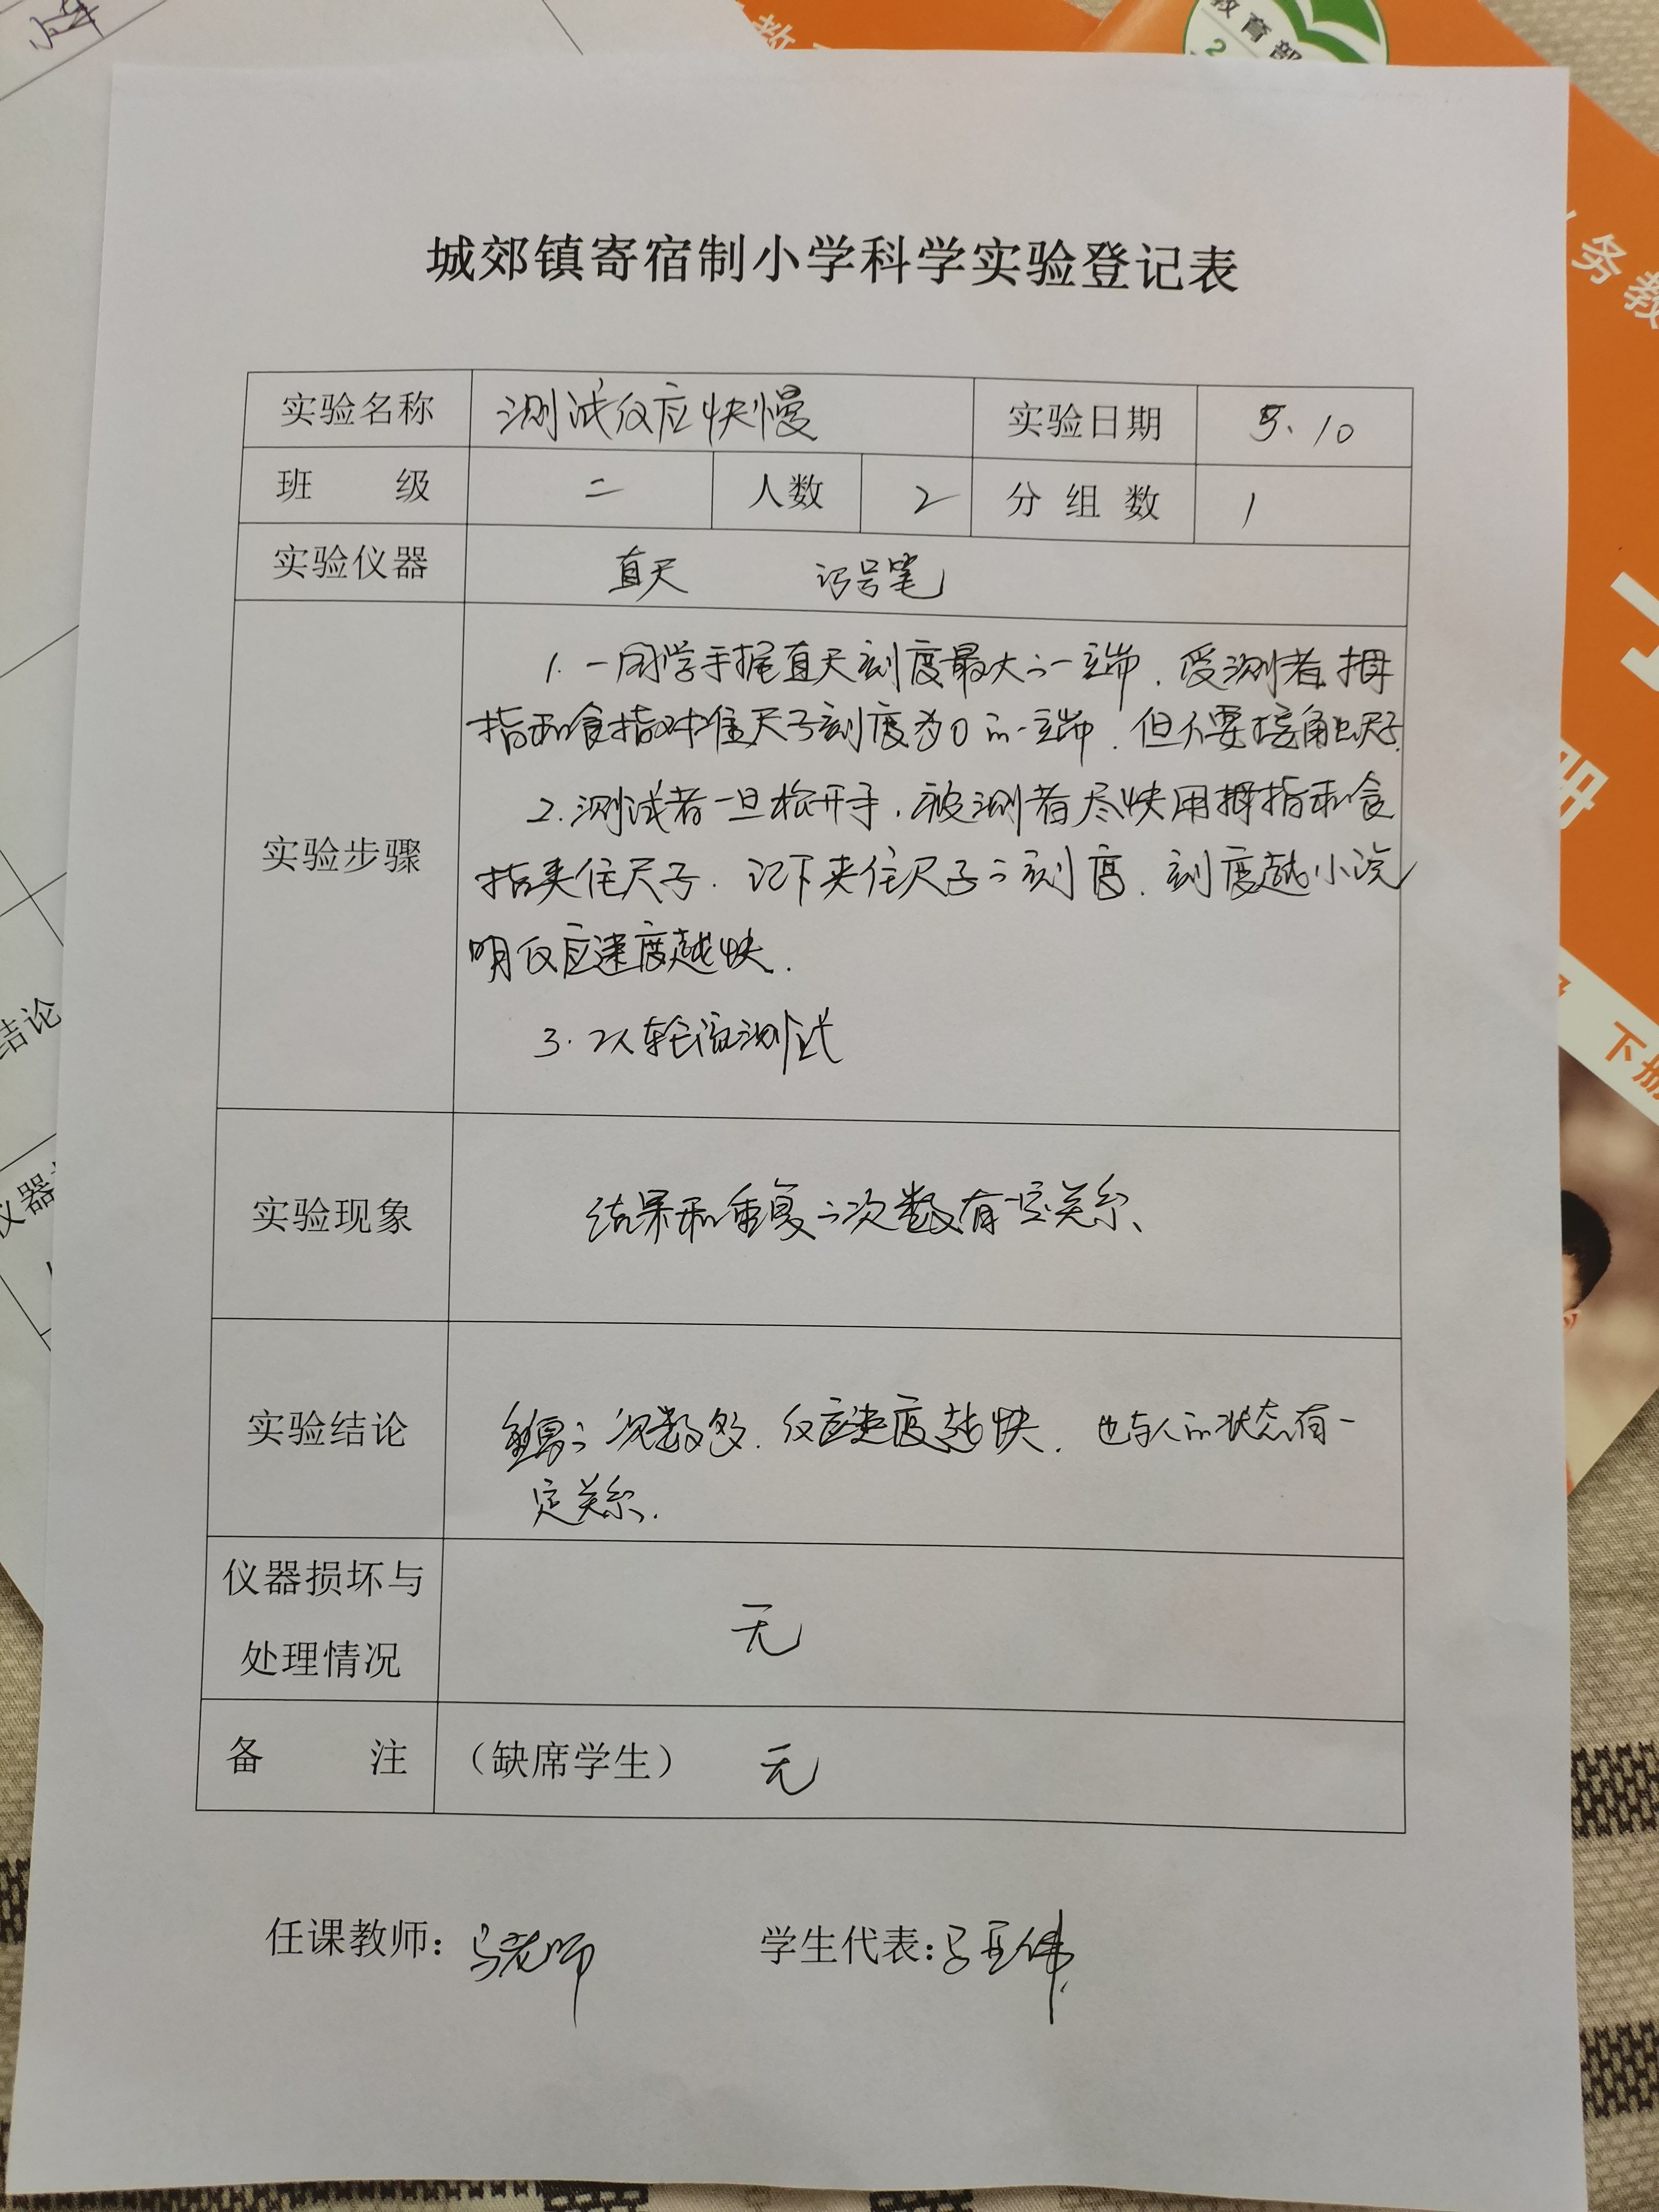 教育部
2
务教
册
下册
结论
仪器
城郊镇寄宿制小学科学实验登记表
实验名称 测试反应快慢 实验日期 5.10
班 级 二 人数 2 分组数 1
实验仪器 直尺 记号笔
实验步骤
1. 一同学手握直尺刻度最大的一端，受测者拇
指和食指对准尺子刻度为0的一端，但不要接触尺子.
2. 测试者一旦松开手，被测者尽快用拇指和食
指夹住尺子. 记下夹住尺子的刻度，刻度越小说
明反应速度越快.
3. 2人轮流测试
实验现象 结果和重复的次数有一定关系、
实验结论 重复的次数多，反应速度越快，也与人的状态有一
定关系.
仪器损坏与
处理情况 无
备 注 （缺席学生） 无
任课教师：马老师 学生代表：马亚伟